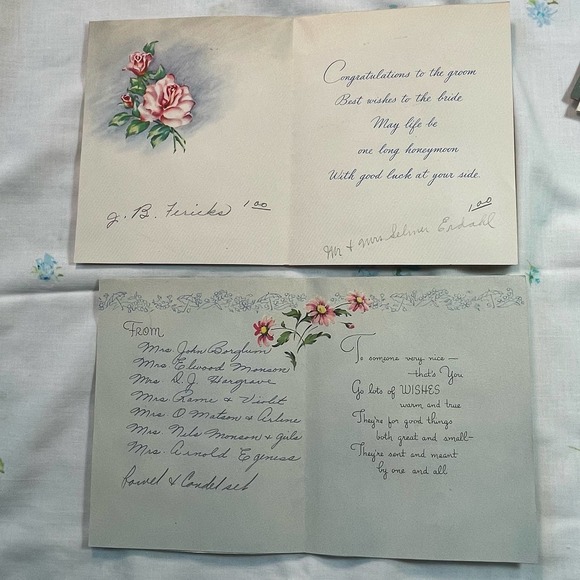 Congratulations to the groom
Best wishes to the bride
May life be
one long honeymoon
With good luck at your side.
J. B. Fericks 1.00
1.00
Mr & Mrs Selmer Erdahl
From
Mrs John Borghum
Mrs Elwood Monson
Mrs D. J. Hargrave
Mrs Rame & Violet
Mrs O Matson & Arline
Mrs Nels Monson & girls
Mrs. Arnold Egeness
Towel & Candel set
To someone very nice—
—that's You
Go lots of WISHES
warm and true
They're for good things
both great and small—
They're sent and meant
by one and all